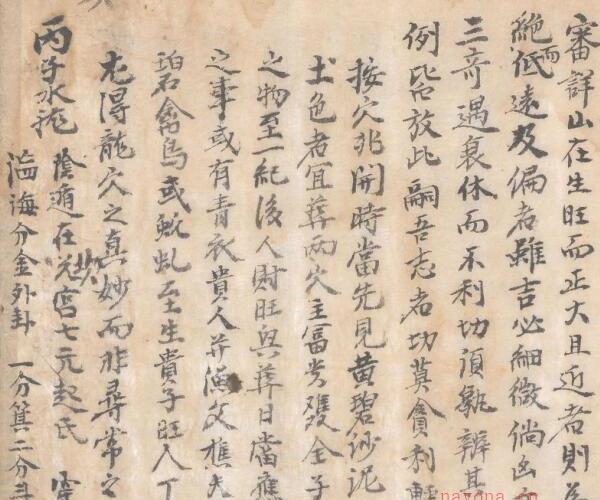 審詳山在生旺而正大且近者則
絕而低遠及偏者雖吉必細微倘凶
三奇遇衰休而不利切須甄辨其
例毕放此嗣吾志者切莫貪利輕
按穴兆開時當先見黃碧砂泥
土色者宜葬兩穴主富贵雙全子
之物至一紀後人財旺與葬日當應
之事或有青衣貴人并漁父樵夫
珀石禽鳥或蛇虬至生貴子旺人丁
尤得龍穴之真妙而非尋常之
丙子水龍 陰遁在坎宮七元起氐
滥海分金外卦 一分箕二分斗
navona.cn